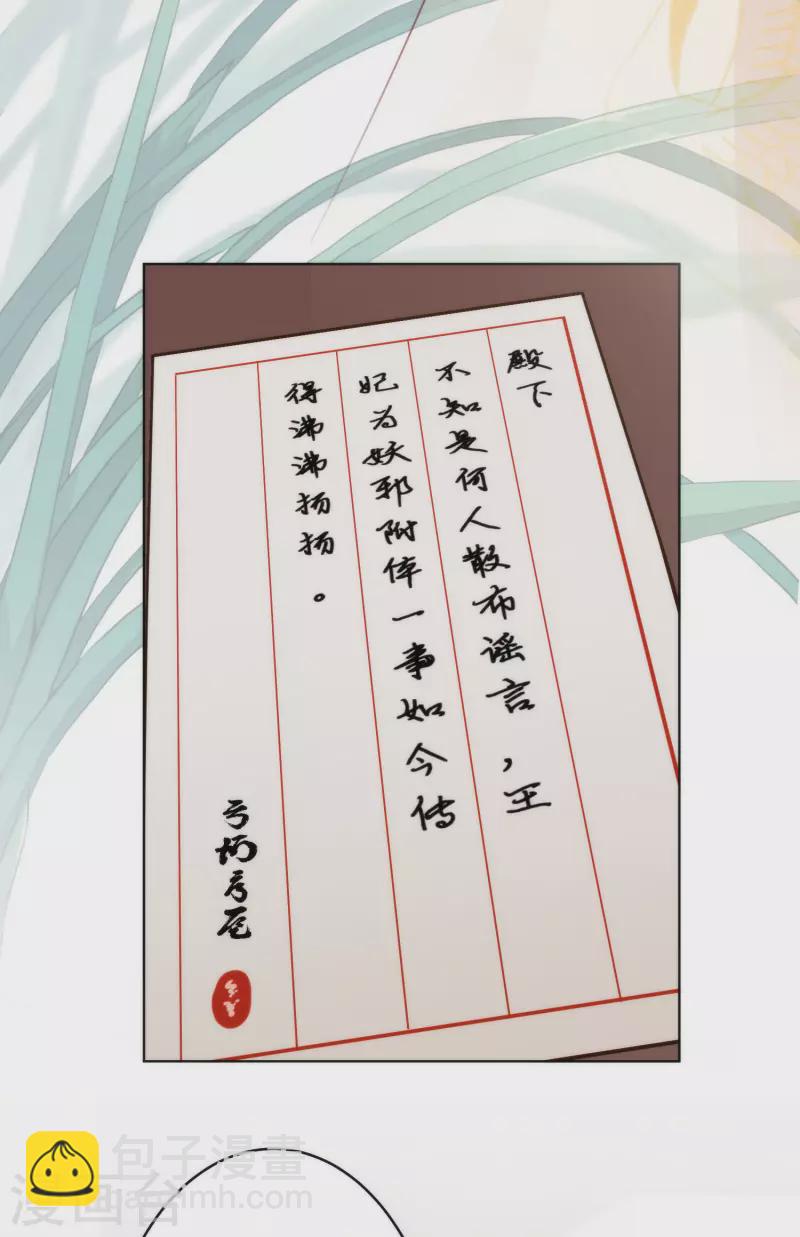 殿下
不知是何人散布谣言,王
妃为妖邪附倖一事如今传
得沸沸扬扬。
包子漫畫
漫画台